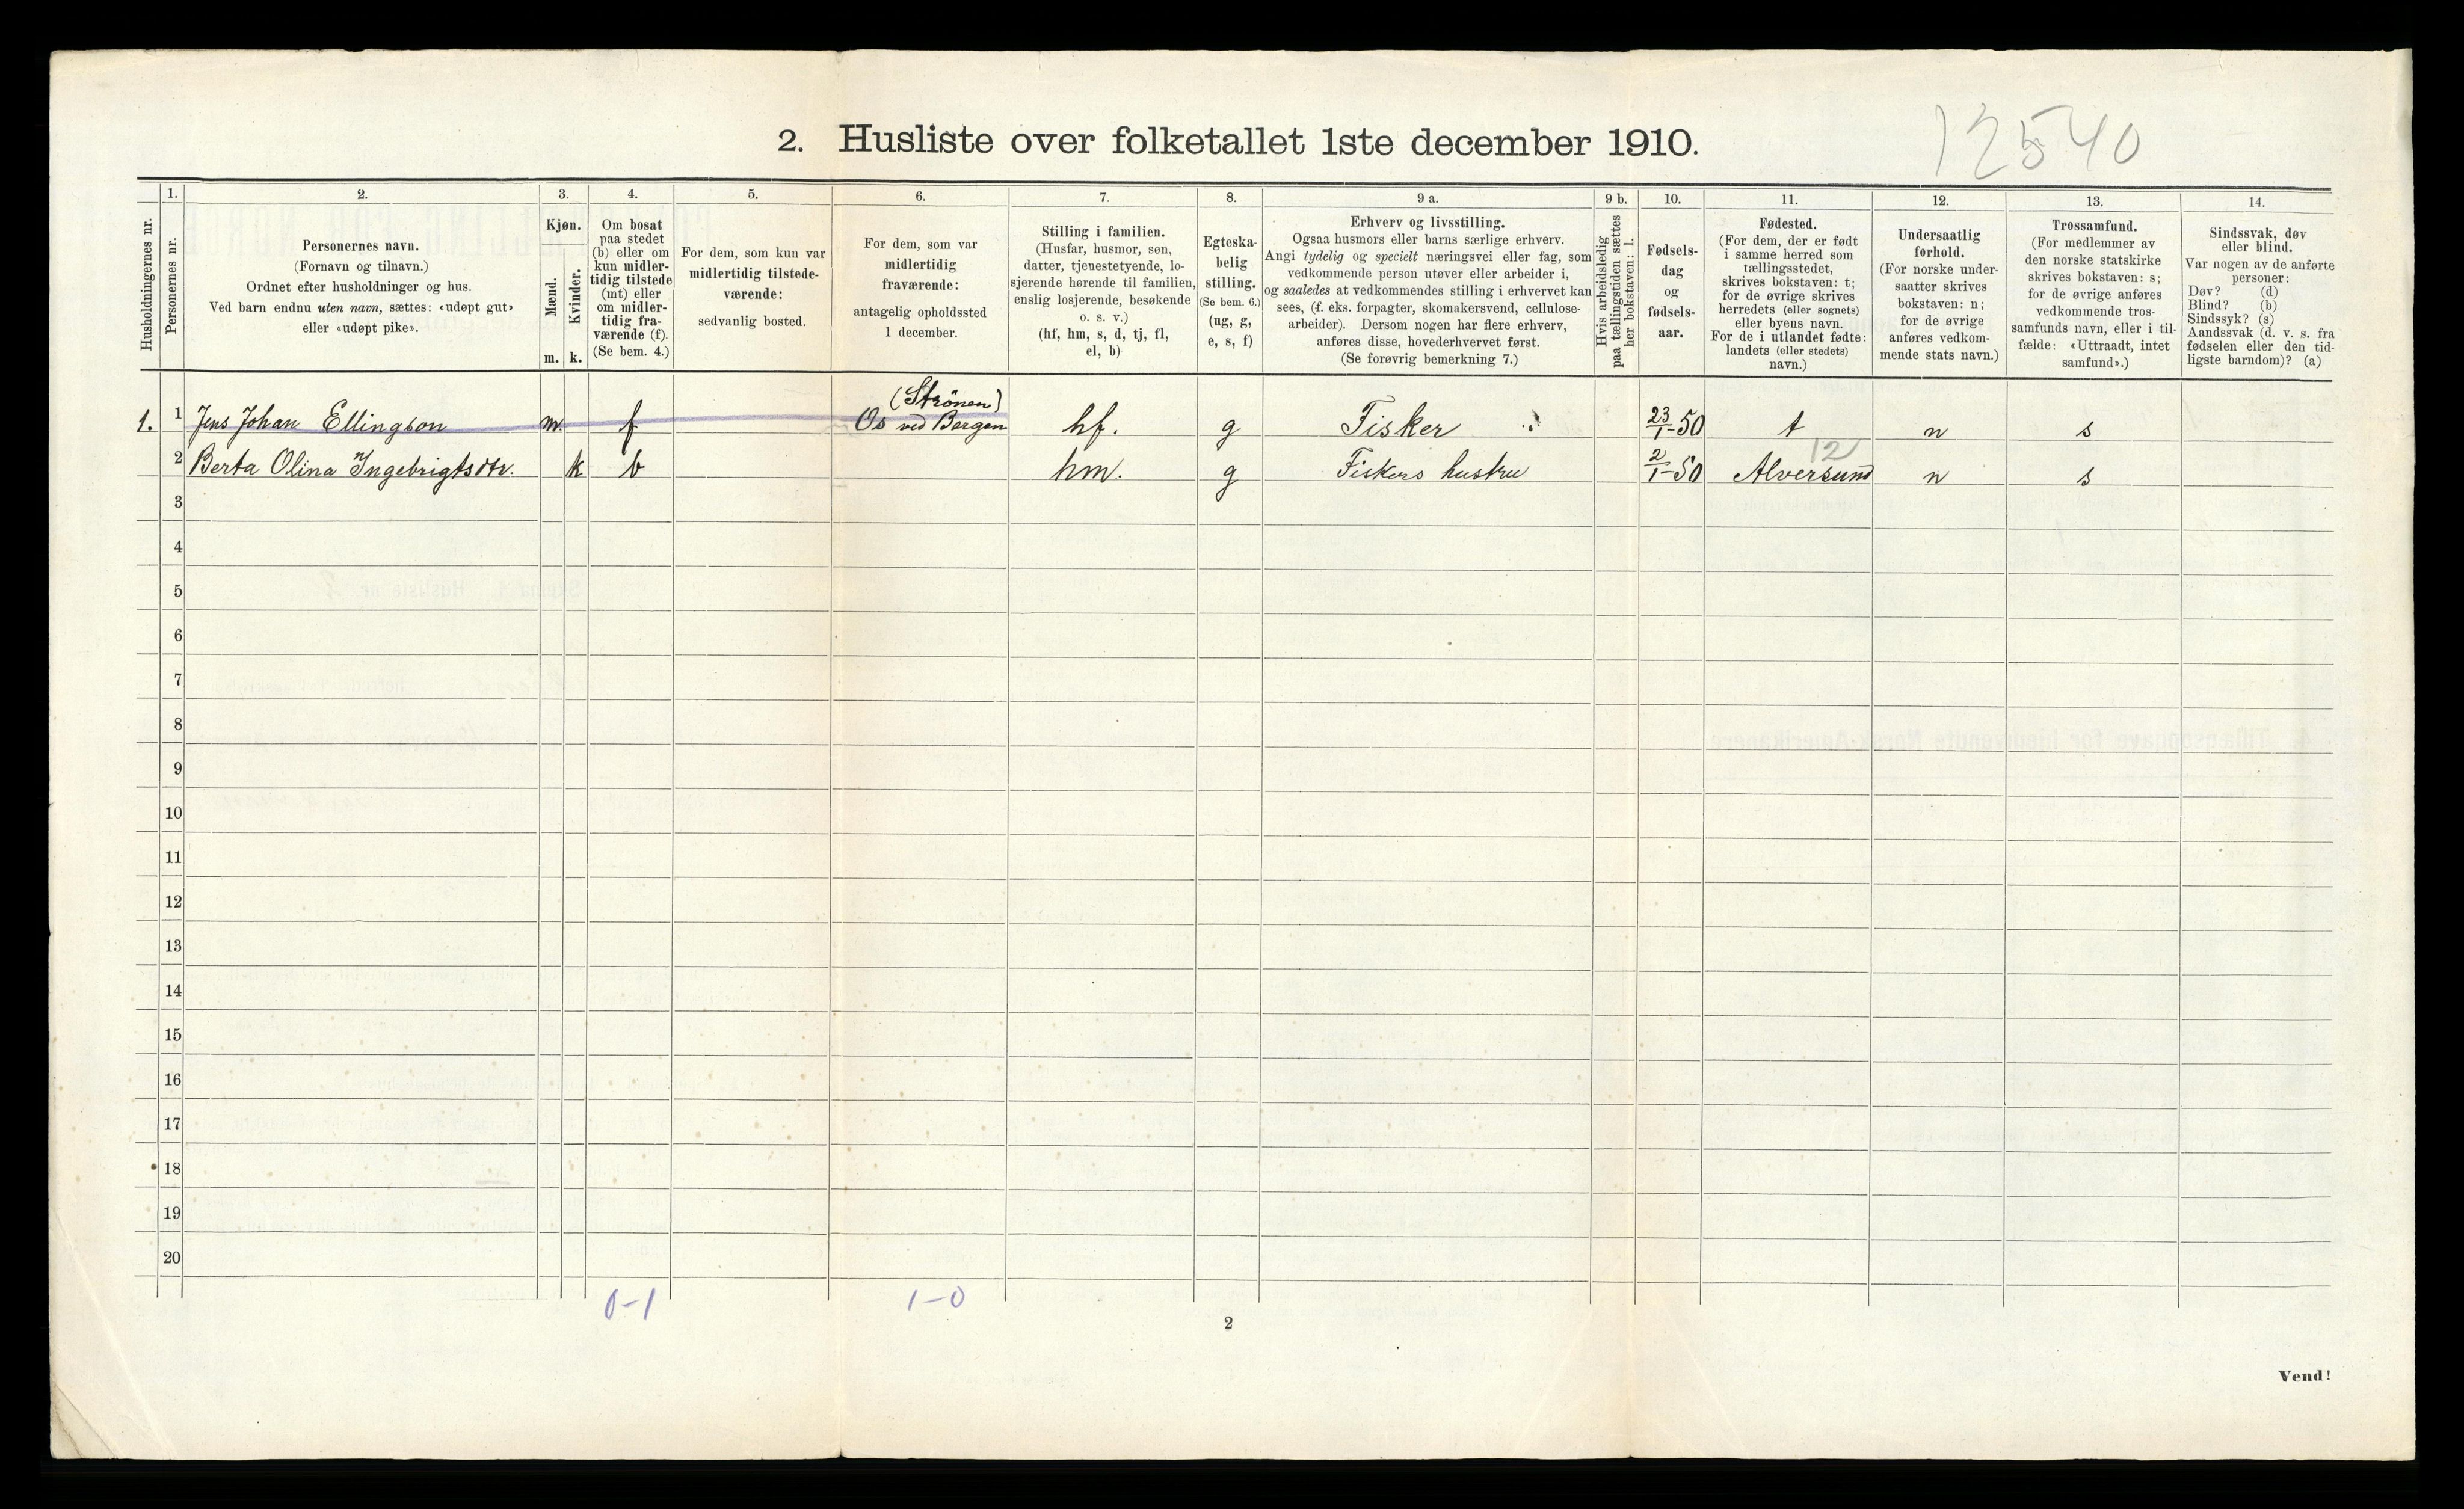 12540
2. Husliste over folketallet 1ste december 1910.
Husholdningernes nr.
1.
Personernes nr.
2.
Personernes navn.
(Fornavn og tilnavn.)
Ordnet efter husholdninger og hus.
Ved barn endnu uten navn, sættes: «udøpt gut»
eller «udøpt pike».
3.
Kjøn.
Mænd.
Kvinder.
m. k.
4.
Om bosat
paa stedet
(b) eller om
kun midler-
tidig tilstede
(mt) eller
om midler-
tidig fra-
værende (f).
(Se bem. 4.)
5.
For dem, som kun var
midlertidig tilstede-
værende:
sedvanlig bosted.
6.
For dem, som var
midlertidig
fraværende:
antagelig opholdssted
1 december.
7.
Stilling i familien.
(Husfar, husmor, søn,
datter, tjenestetyende, lo-
sjerende hørende til familien,
enslig losjerende, besøkende
o. s. v.)
(hf, hm, s, d, tj, fl,
el, b)
8.
Egteska-
belig
stilling.
(Se bem. 6.)
(ug, g,
e, s, f)
9 a.
Erhverv og livsstilling.
Ogsaa husmors eller barns særlige erhverv.
Angi tydelig og specielt næringsvei eller fag, som
vedkommende person utøver eller arbeider i,
og saaledes at vedkommendes stilling i erhvervet kan
sees, (f. eks. forpagter, skomakersvend, cellulose-
arbeider). Dersom nogen har flere erhverv,
anføres disse, hovederhvervet først.
(Se forøvrig bemerkning 7.)
9 b.
Hvis arbeidsledig
paa tællingstiden sættes
her bokstaven: l.
10.
Fødsels-
dag
og
fødsels-
aar.
11.
Fødested.
(For dem, der er født
i samme herred som
tællingsstedet,
skrives bokstaven: t;
for de øvrige skrives
herredets (eller sognets)
eller byens navn.
For de i utlandet fødte:
landets (eller stedets)
navn.)
12.
Undersaatlig
forhold.
(For norske under-
saatter skrives
bokstaven: n;
for de øvrige
anføres vedkom-
mende stats navn.)
13.
Trossamfund.
(For medlemmer av
den norske statskirke
skrives bokstaven: s;
for de øvrige anføres
vedkommende tros-
samfunds navn, eller i til-
fælde: «Uttraadt, intet
samfund».)
14.
Sindssvak, døv
eller blind.
Var nogen av de anførte
personer:
Døv? (d)
Blind? (b)
Sindssyk? (s)
Aandssvak (d. v. s. fra
fødselen eller den tid-
ligste barndom)? (a)
(Strönen)
1. 1 Jens Johan Ellingson m. f Os ved Bergen hf. g Fisker 23/1-50 t n s
12
2 Berta Olina Ingebrigtsdtr. k b hm. g Fiskers hustru 2/1-50 Alversund n s
3
4
5
6
7
8
9
10
11
12
13
14
15
16
17
18
19
20
0-1 1-0
2
Vend!